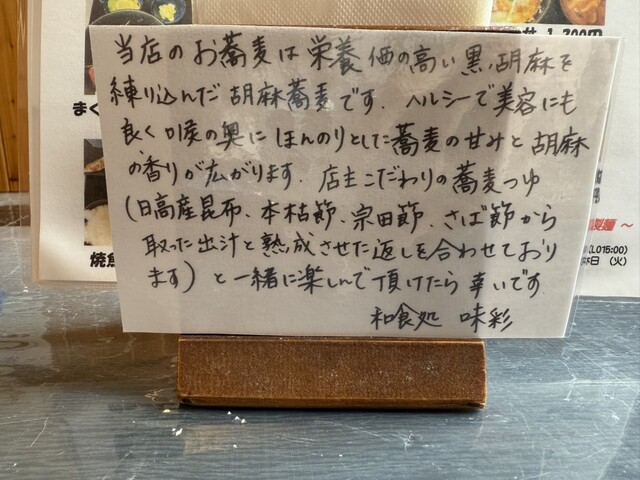 当店のお蕎麦は栄養価の高い黒胡麻を
練り込んだ胡麻蕎麦です。ヘルシーで美容にも
良く口炭の奥にほんのりとした蕎麦の甘みと胡麻
の香りが広がります。店主こだわりの蕎麦つゆ
(日高産昆布、本枯節、宗田節、さば節から
取った出汁と熟成させた返しを合わせており
ます)と一緒に楽しんで頂けたら幸いです
和食処 味彩
1,300円
まく
焼魚
製麺 ～
(LO15:00)
日 (火)